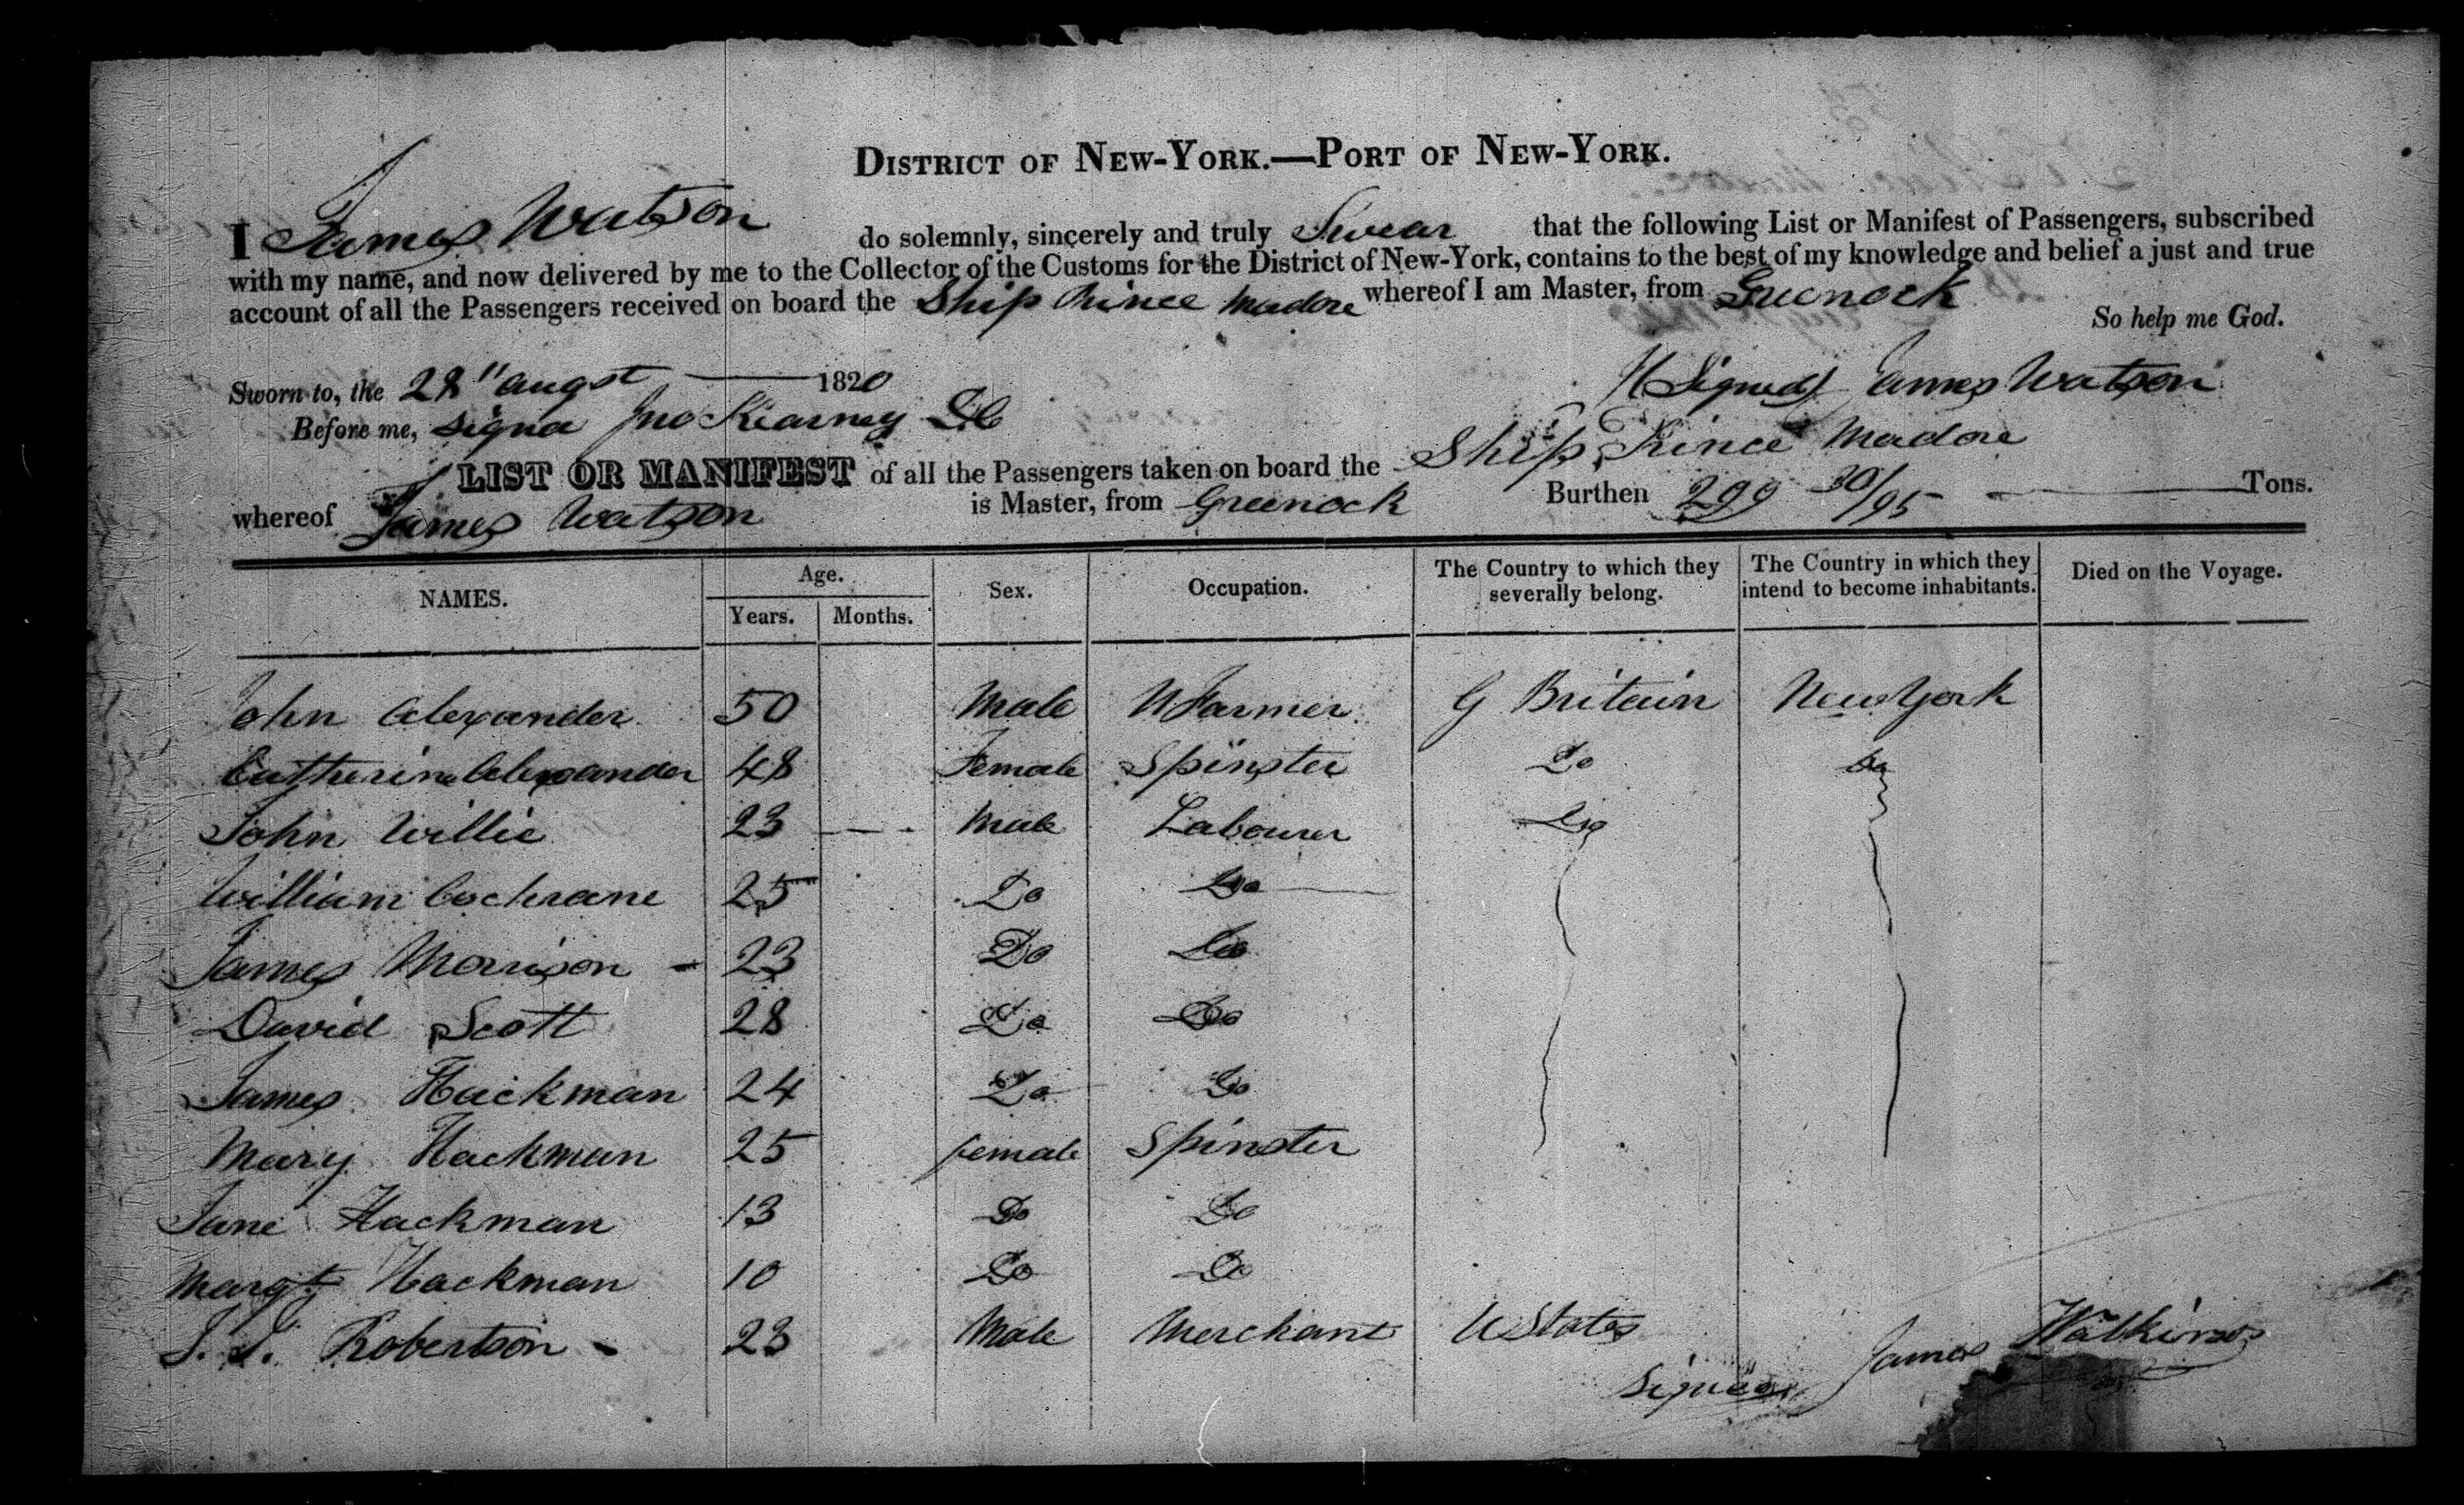 DISTRICT OF NEW-YORK.—PORT OF NEW-YORK.
I James Watson do solemnly, sincerely and truly Swear that the following List or Manifest of Passengers, subscribed
with my name, and now delivered by me to the Collector of the Customs for the District of New-York, contains to the best of my knowledge and belief a just and true
account of all the Passengers received on board the Ship Prince Madore whereof I am Master, from Greenock
So help me God.
Sworn to, the 28" augst 1820 (Signed) James Watson
Before me, signd Jno Kearney DC
LIST OR MANIFEST of all the Passengers taken on board the Ship Prince Madore
whereof James Watson is Master, from Greenock Burthen 299 30/95 Tons.
NAMES. Age. Years. Months. Sex. Occupation. The Country to which they severally belong. The Country in which they intend to become inhabitants. Died on the Voyage.
John Alexander 50 Male Farmer G Britain New York
Catherine Alexander 48 Female Spinster Do Do
John Willie 23 Male Labourer Do
William Cochrane 25 Do Do
James Morrison - 23 Do Do
David Scott 28 Do Do
James Hackman 24 Do Do
Mary Hackman 25 female Spinster
Jane Hackman 13 Do Do
Margt Hackman 10 Do Do
J. J. Robertson - 23 Male Merchant U States
Signed James